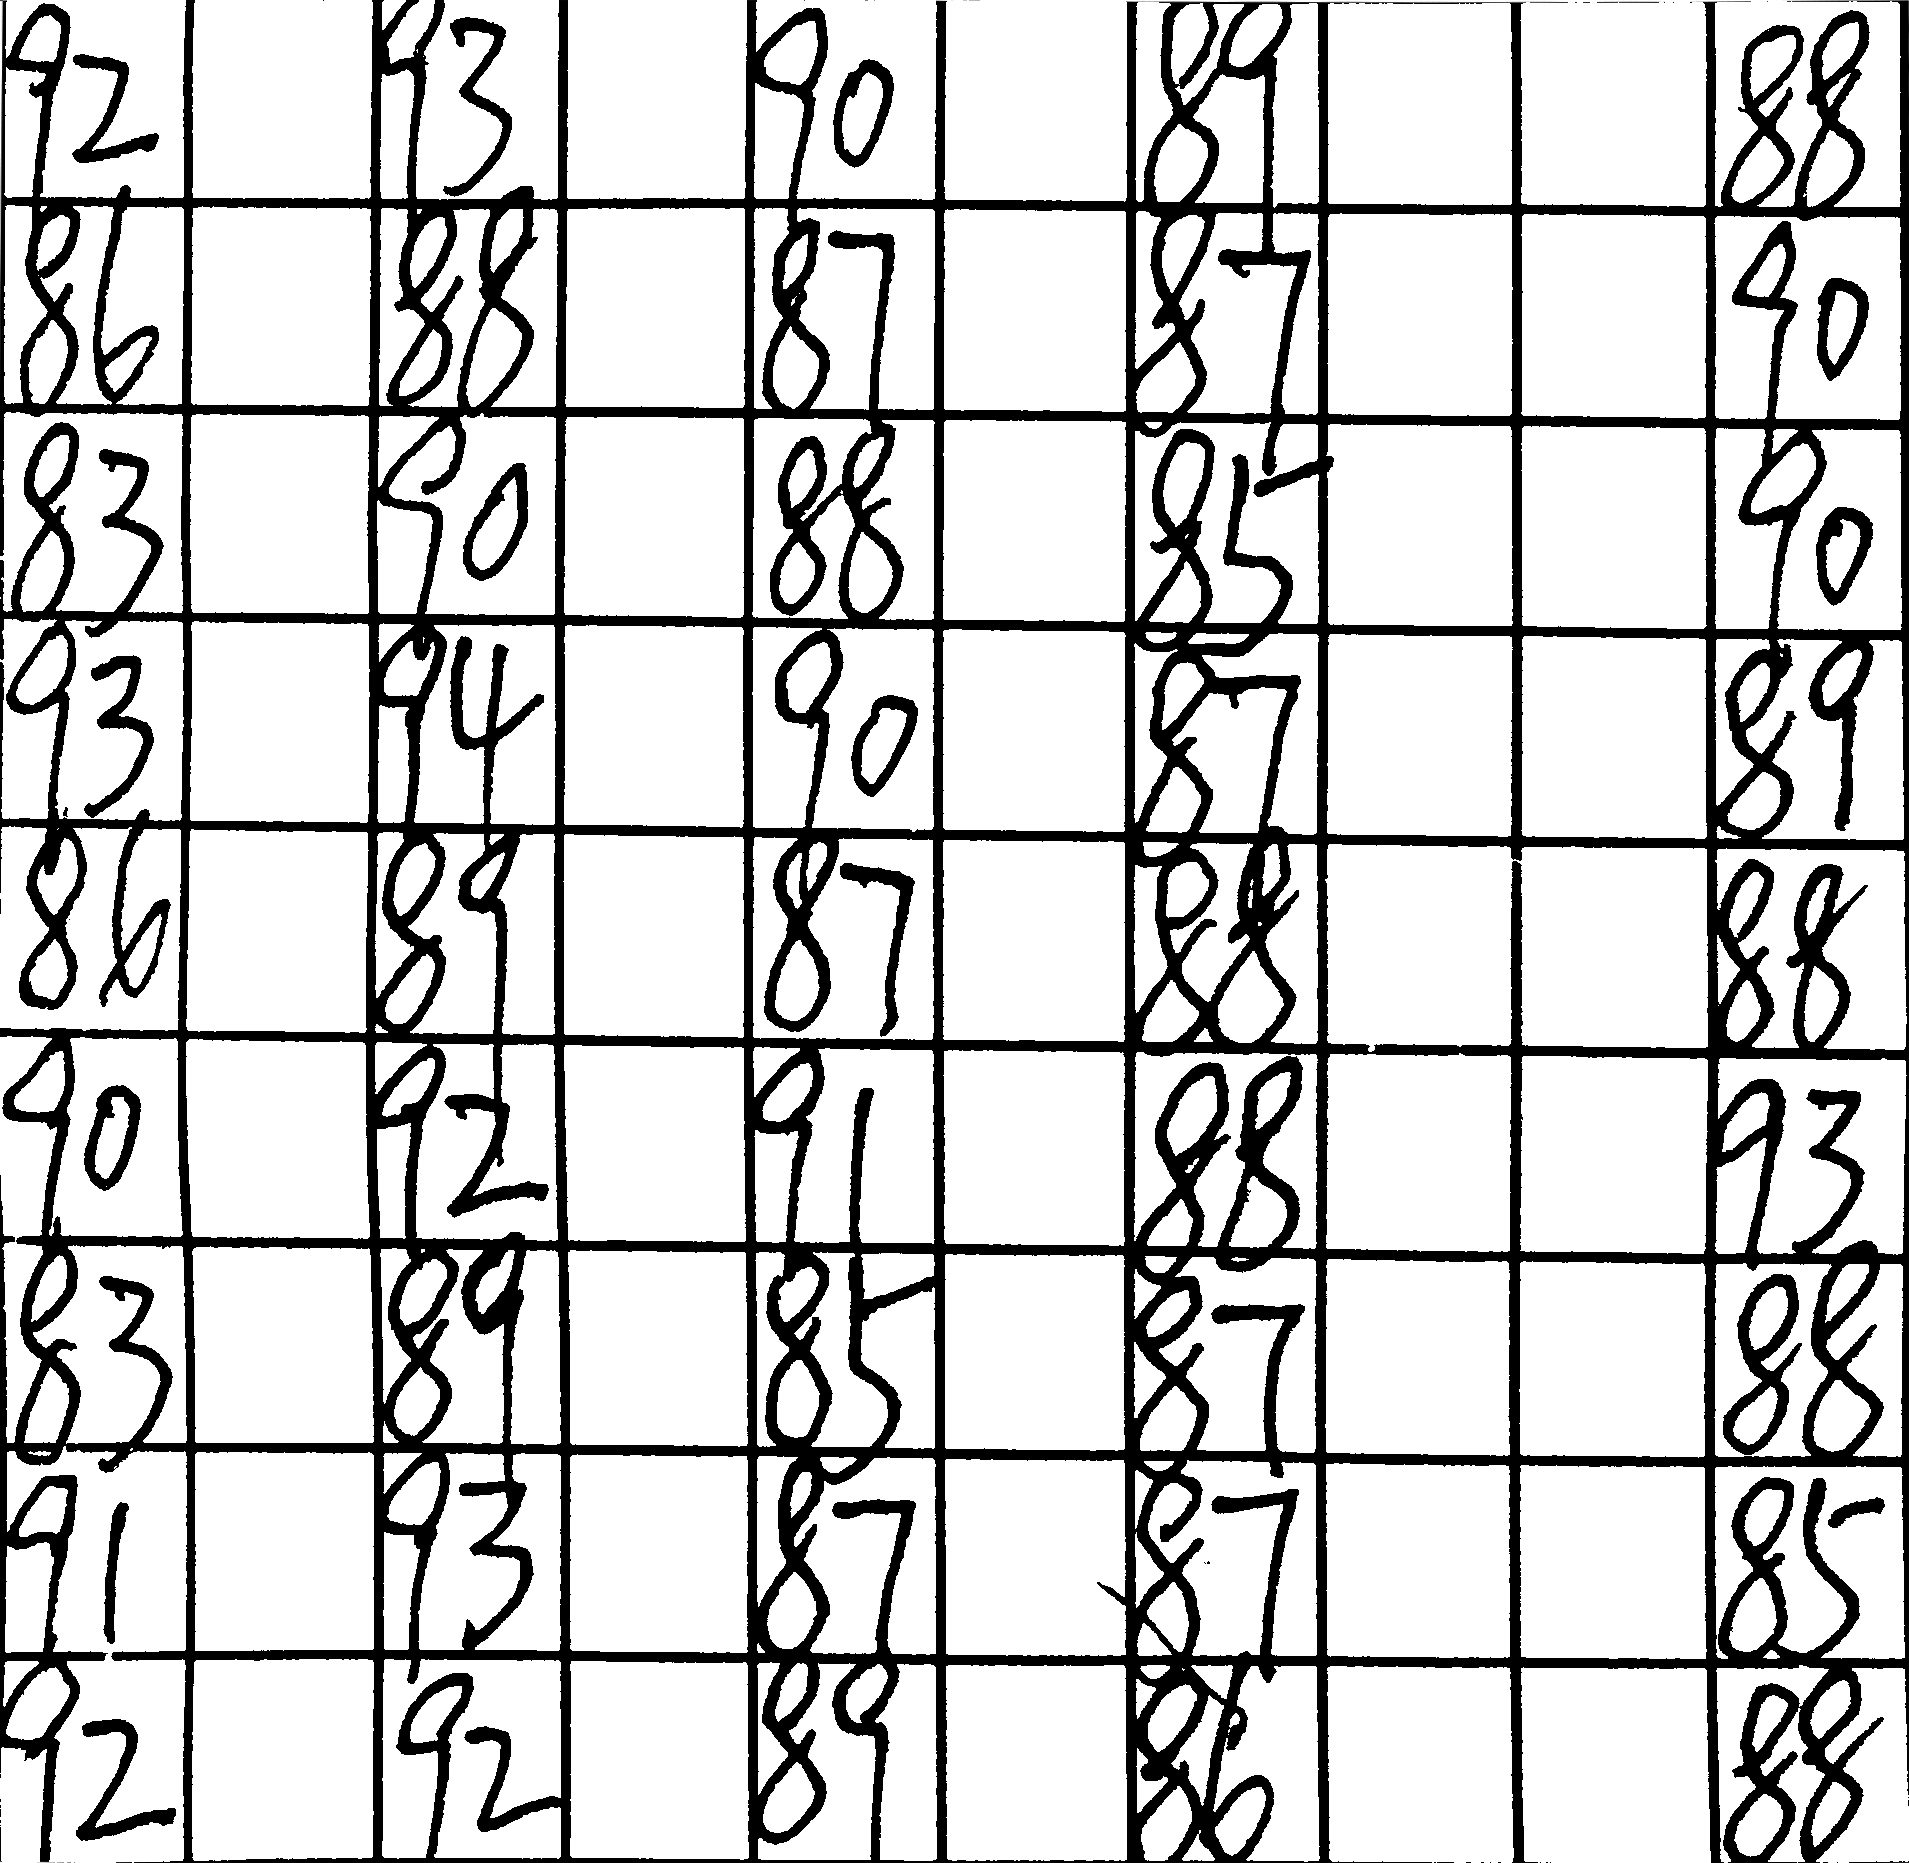 92 93 90 89 88
86 88 87 87 90
83 90 88 85 90
93 94 90 87 89
86 89 87 88 88
90 92 91 88 93
83 89 85 87 88
91 93 87 87 85
92 92 89 86 88